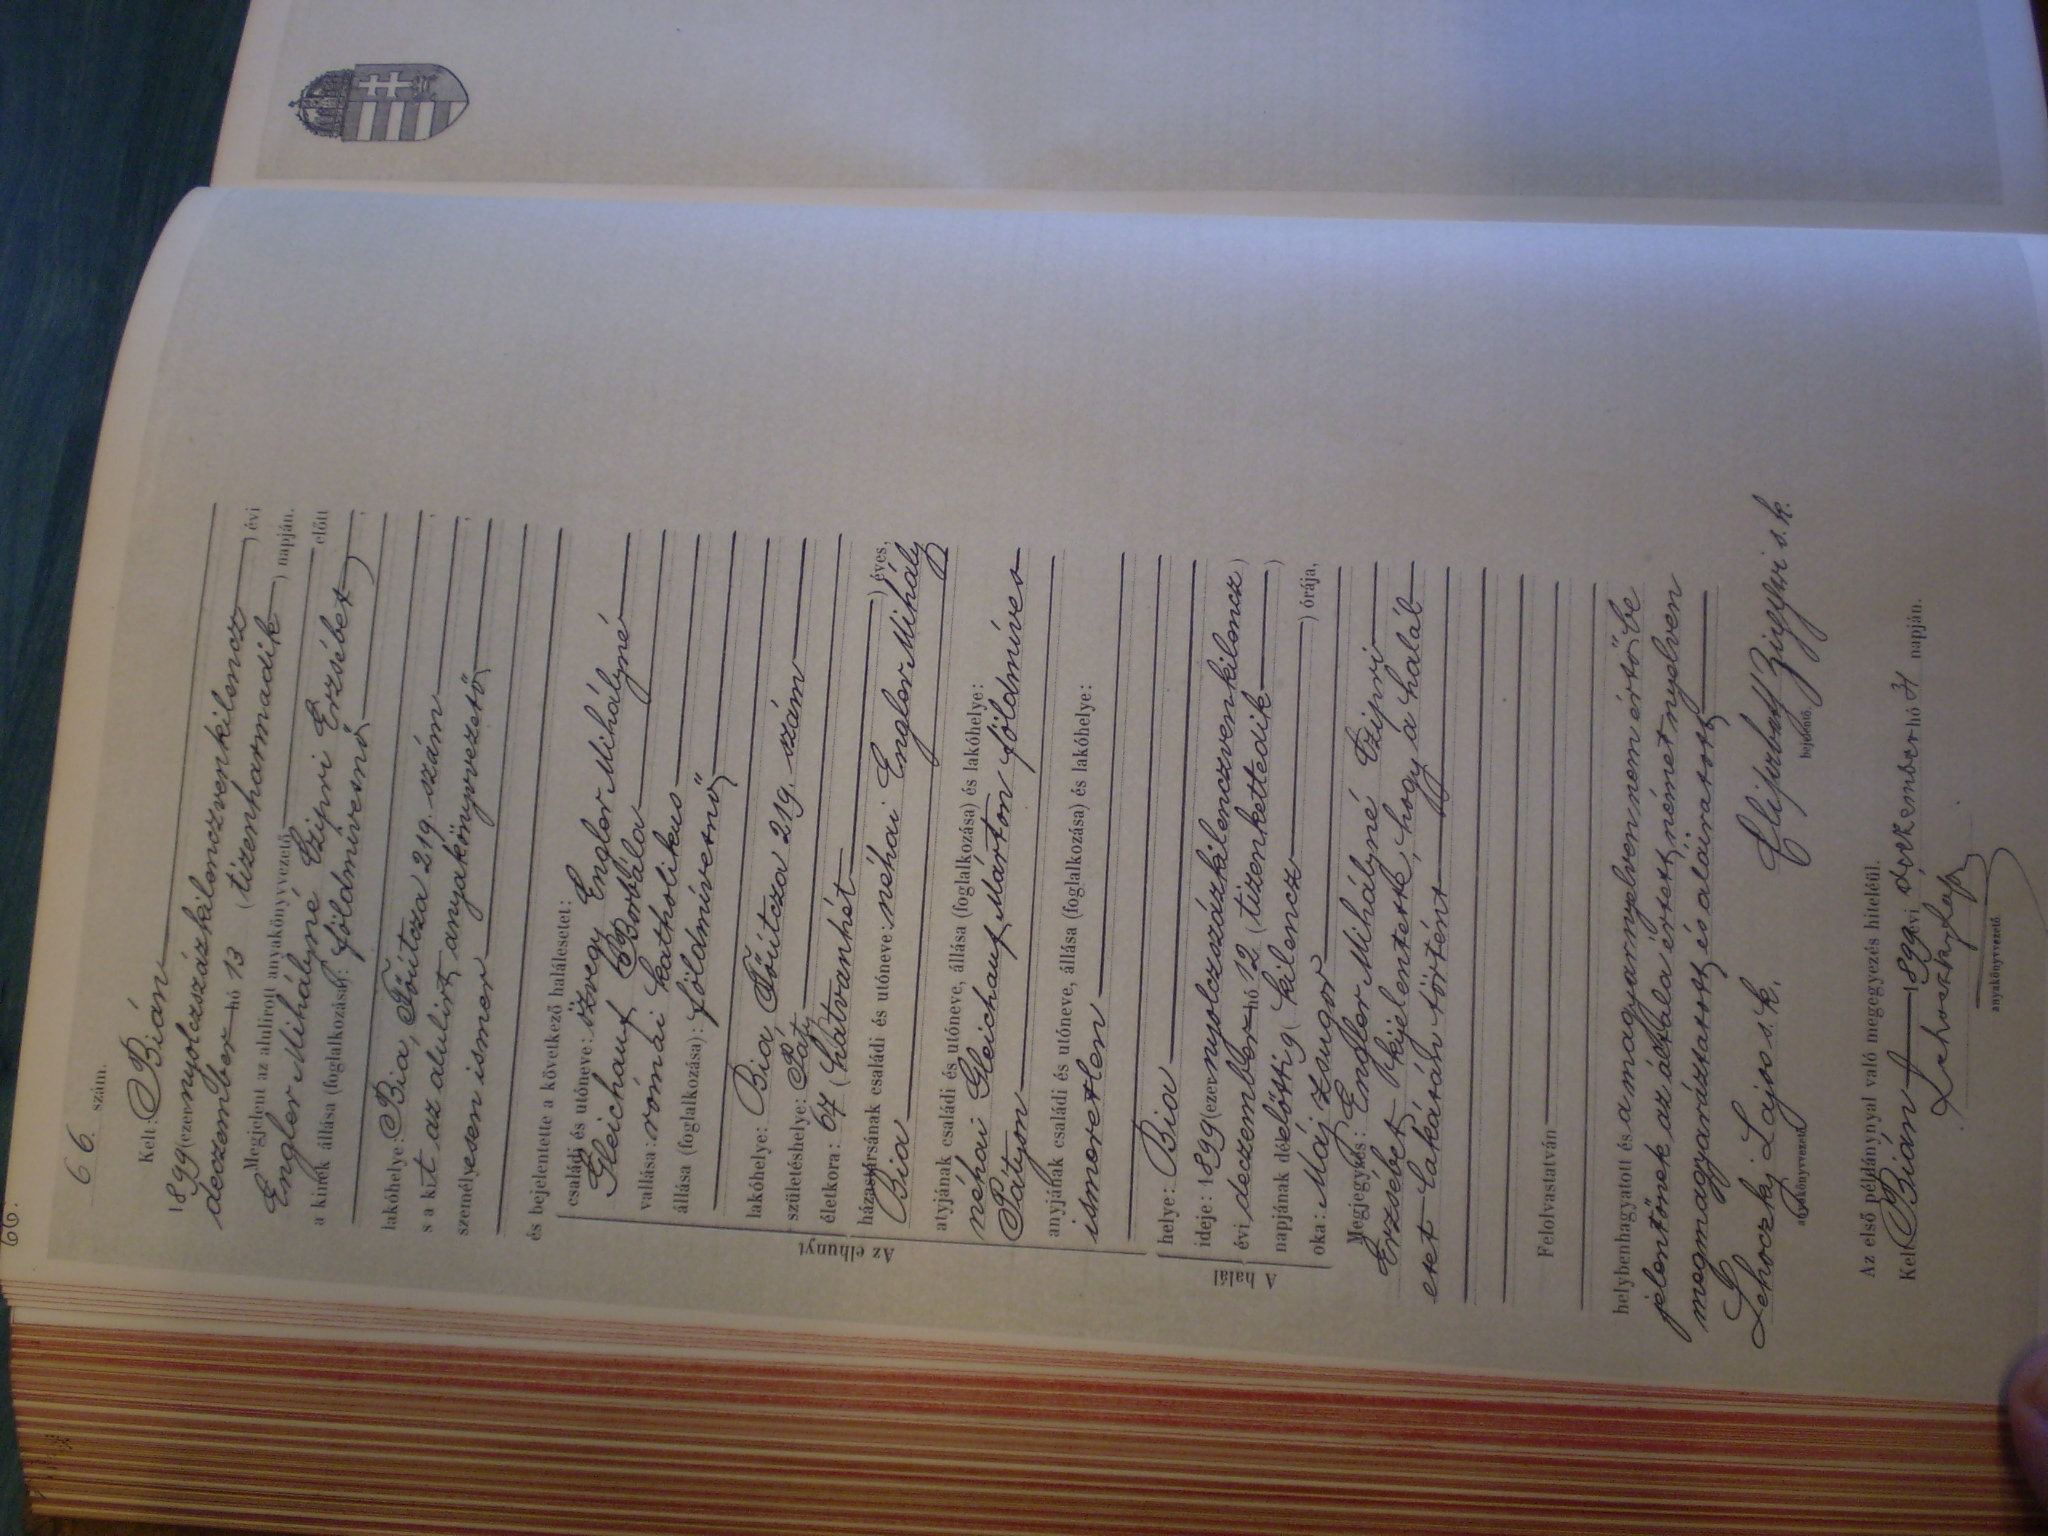 66.
66. szám.
Kelt: Bián
1899 (ezer nyolczszázkilenczvenkilencz) évi
deczember hó 13 (tizenharmadik) napján.
Megjelent az alulirott anyakönyvvezető előtt
Engler Mihályné Czipri Erzsébet
a kinek állása (foglalkozása): földmívesnő,
lakóhelye: Bia, Főútcza 219. szám,
s a kit az alulirt anyakönyvvezető,
személyesen ismer
és bejelentette a következő halálesetet:
Az elhunyt
családi és utóneve: özvegy Engler Mihályné
Gleichauf Borbála
vallása: római katholikus
állása (foglalkozása): földmívesnő
lakóhelye: Bia Főútcza 219. szám
születéshelye: Páty
életkora: 67 (hatvanhét) éves,
házastársának családi és utóneve: néhai Engler Mihály
Bia
atyjának családi és utóneve, állása (foglalkozása) és lakóhelye:
néhai Gleichauf Márton földmíves
Pátyon
anyjának családi és utóneve, állása (foglalkozása) és lakóhelye:
ismeretlen
A halál
helye: Bia
ideje: 1899 (ezer nyolczszázkilenczvenkilencz)
évi deczember hó 12 (tizenkettedik)
napjának délelőtti 9 (kilencz) órája,
oka: Máj zsugor
Megjegyzés: Engler Mihályné Czipri
Erzsébet kijelentette, hogy a halál
eset lakásán történt
Felolvastatván
helybenhagyatott és a magyar nyelven nem értő be
jelentőnek az általa értett német nyelven
megmagyaráztatott, és aláíratott,
Lehoczky Lajos s. k.
anyakönyvvezető.
s. k.
bejelentő.
Az első példánynyal való megegyezés hiteléül.
Kelt Bián 1899 évi deczember hó 31 napján.
Lehoczky Lajos
anyakönyvvezető.